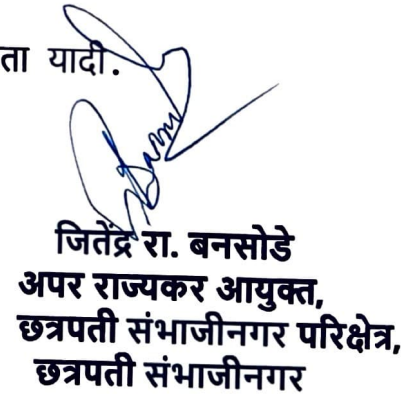 ता यादी.
जितेंद्र रा. बनसोडे
अपर राज्यकर आयुक्त,
छत्रपती संभाजीनगर परिक्षेत्र,
छत्रपती संभाजीनगर